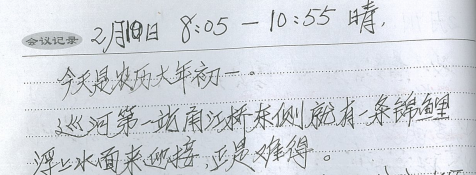 会议记录 2月10日 8:05 — 10:55 晴.
今天是农历大年初一。
巡河第一站甬江桥东侧就有一条锦鲤
浮上水面来迎接,正是难得。